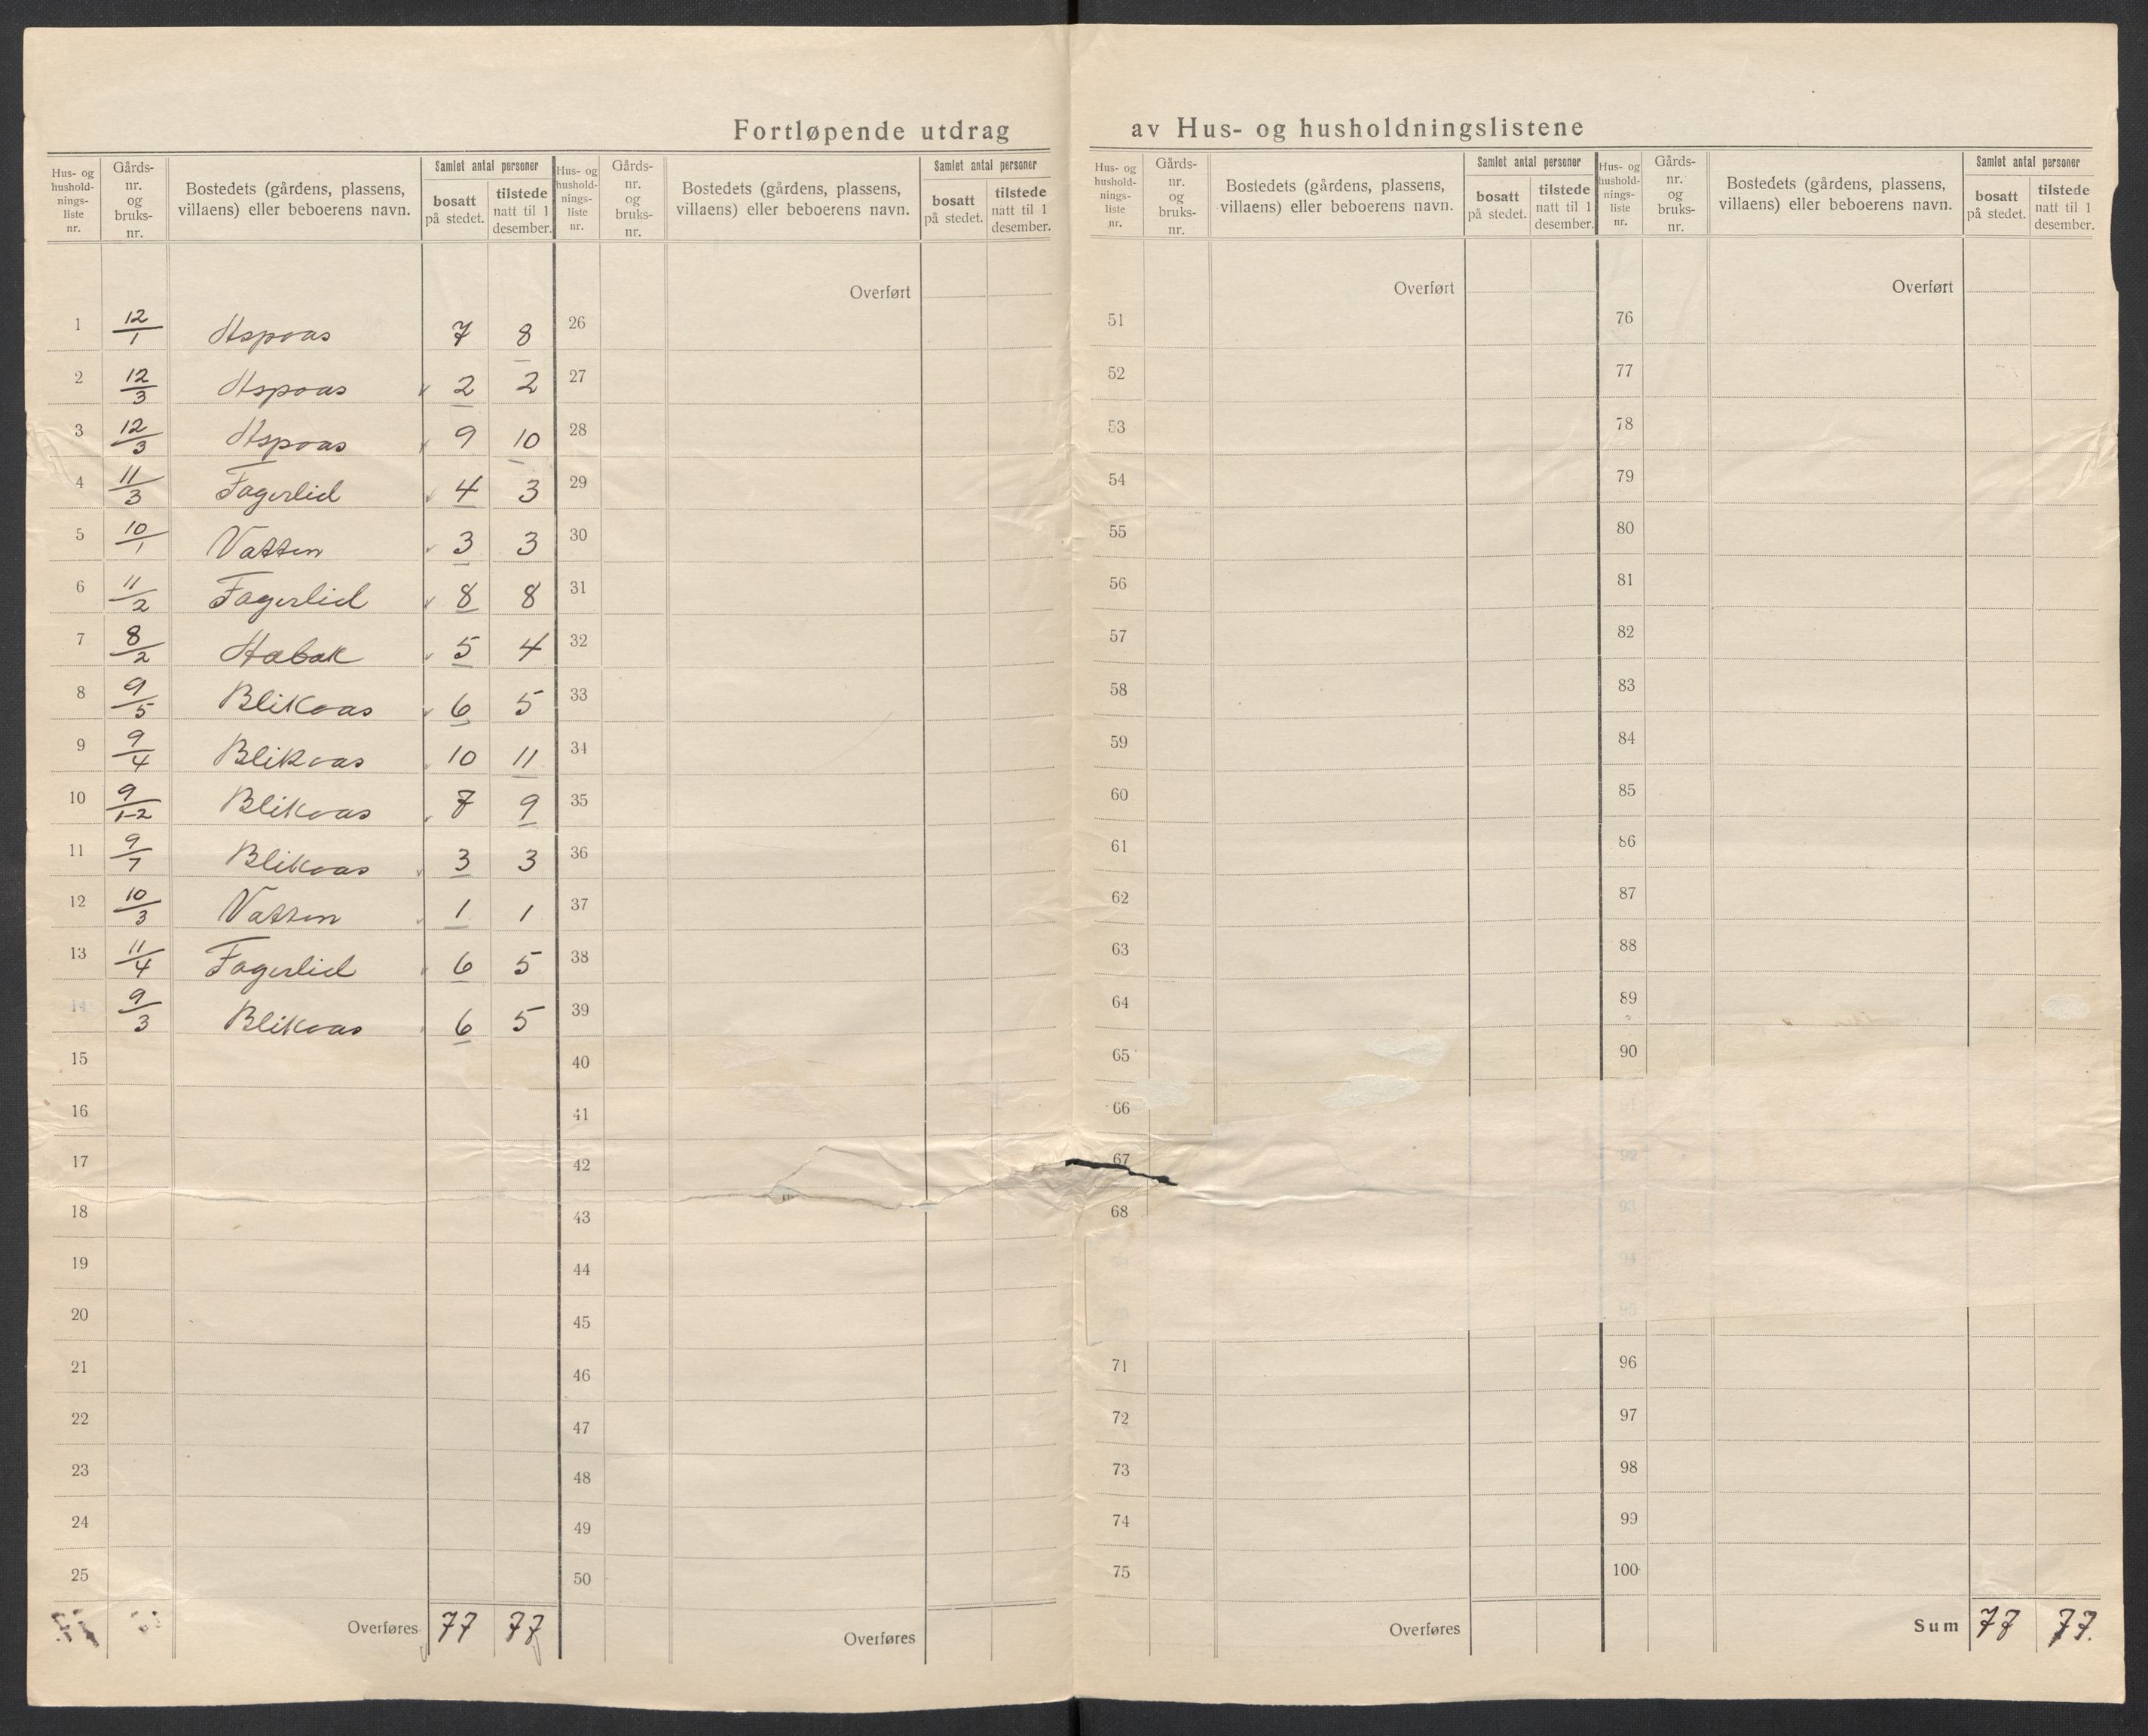 Fortløpende utdrag av Hus- og husholdningslistene
Hus- og hushold-nings-liste nr. | Gårds-nr. og bruks-nr. | Bostedets (gårdens, plassens, villaens) eller beboerens navn. | Samlet antal personer | bosatt på stedet. | tilstede natt til 1 desember.
1 12/1 Aspvas 7 8
2 12/3 Aspoas 2 2
3 12/3 Aspvas 9 10
4 11/3 Fagerlid 4 3
5 10/1 Vatten 3 3
6 11/2 Fagerlid 8 8
7 8/2 Habak 5 4
8 9/5 Blikoas 6 5
9 9/4 Blikvas 10 11
10 9/1-2 Blikoas 7 9
11 9/7 Blikoas 3 3
12 10/3 Vatten 1 1
13 11/4 Fagerlid 6 5
14 9/3 Blikoas 6 5
15
16
17
18
19
20
21
22
23
24
25
Overføres 77 77
Hus- og hushold-nings-liste nr. | Gårds-nr. og bruks-nr. | Bostedets (gårdens, plassens, villaens) eller beboerens navn. | Samlet antal personer | bosatt på stedet. | tilstede natt til 1 desember.
Overført
26
27
28
29
30
31
32
33
34
35
36
37
38
39
40
41
42
43
44
45
46
47
48
49
50
Overføres
Hus- og hushold-nings-liste nr. | Gårds-nr. og bruks-nr. | Bostedets (gårdens, plassens, villaens) eller beboerens navn. | Samlet antal personer | bosatt på stedet. | tilstede natt til 1 desember.
Overført
51
52
53
54
55
56
57
58
59
60
61
62
63
64
65
66
67
68
71
72
73
74
75
Overføres
Hus- og hushold-nings-liste nr. | Gårds-nr. og bruks-nr. | Bostedets (gårdens, plassens, villaens) eller beboerens navn. | Samlet antal personer | bosatt på stedet. | tilstede natt til 1 desember.
Overført
76
77
78
79
80
81
82
83
84
85
86
87
88
89
90
91
92
93
94
95
96
97
98
99
100
Sum 77 77.